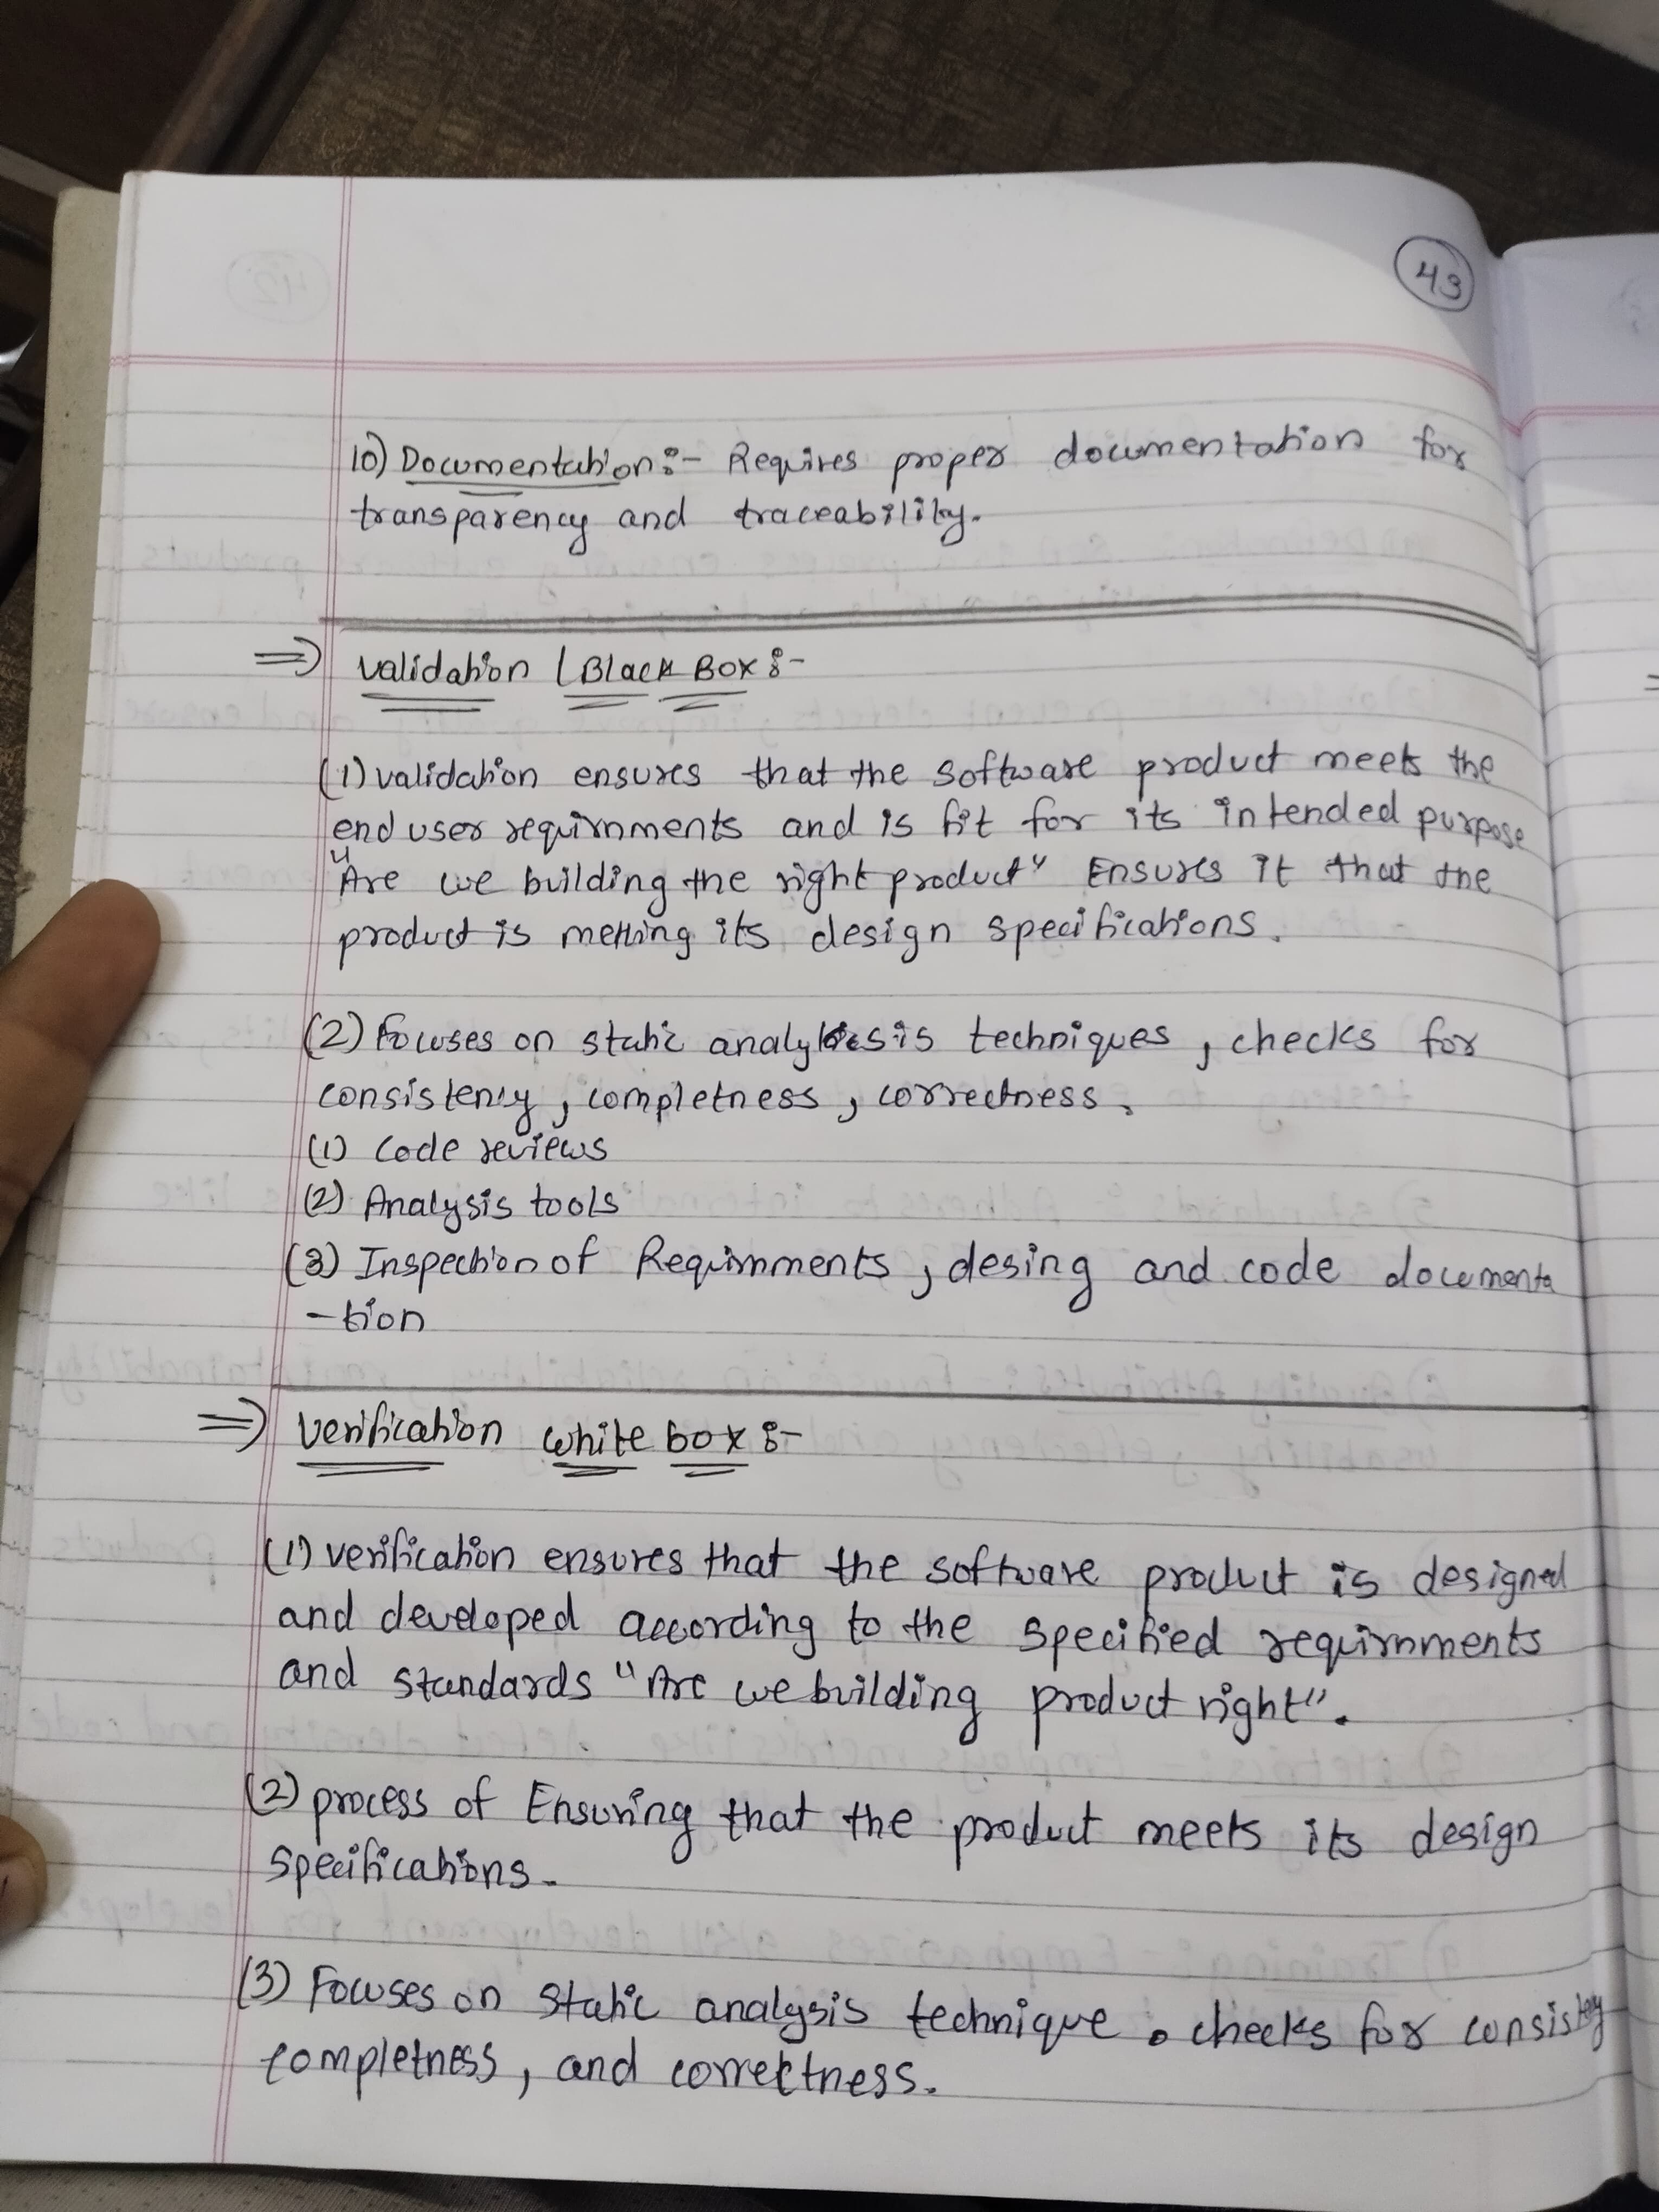 43
10) Documentation:- Requires proper documentation for
transparency and traceability.
=> validation (Black Box:-
(1) validation ensures that the software product meets the
end user requirnments and is fit for its intended purpose
"Are we building the right product" Ensures it that the
product is metting its design specifications.
(2) Focuses on static analysis techniques, checks for
consistency, completness, correctness.
(1) Code reviews
(2) Analysis tools
(3) Inspection of Requirnments, desing and code documenta
-tion
=> Verification white box:-
(1) verification ensures that the software product is designed
and developed according to the specified requirnments
and standards "Are we building product right".
(2) process of Ensuring that the product meets its design
specifications.
(3) Focuses on static analysis technique. checks for consistency
completness, and correctness.